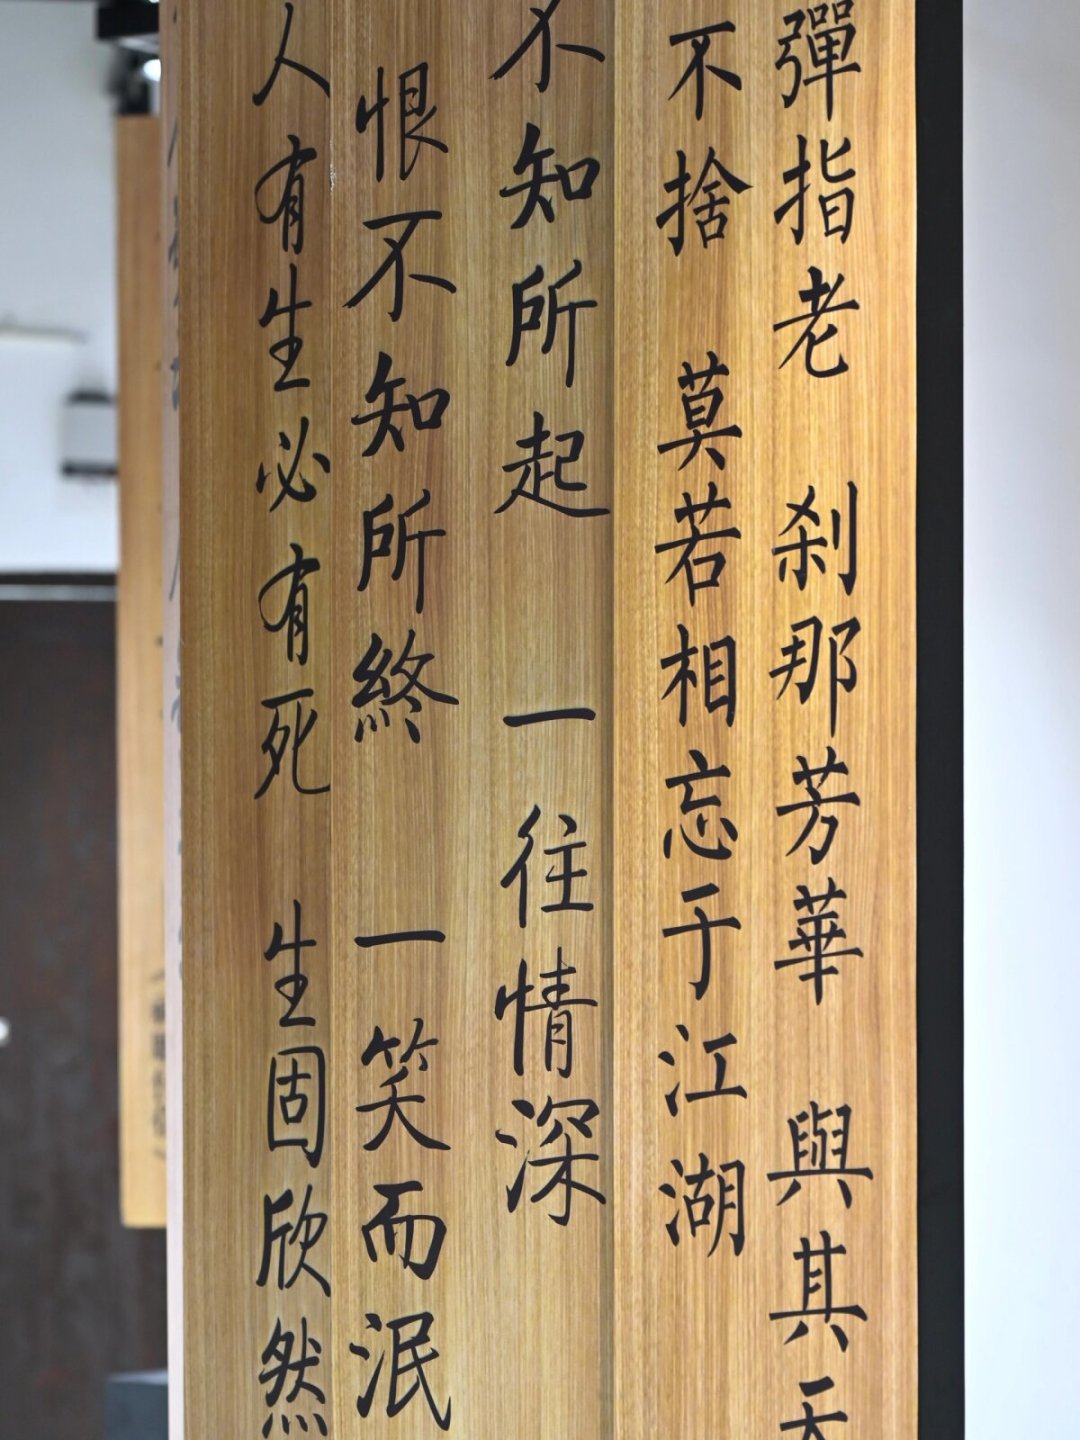 彈指老 剎那芳華 與其天
不捨 莫若相忘于江湖
不知所起 一往情深
恨不知所終 一笑而泯
人有生必有死 生固欣然